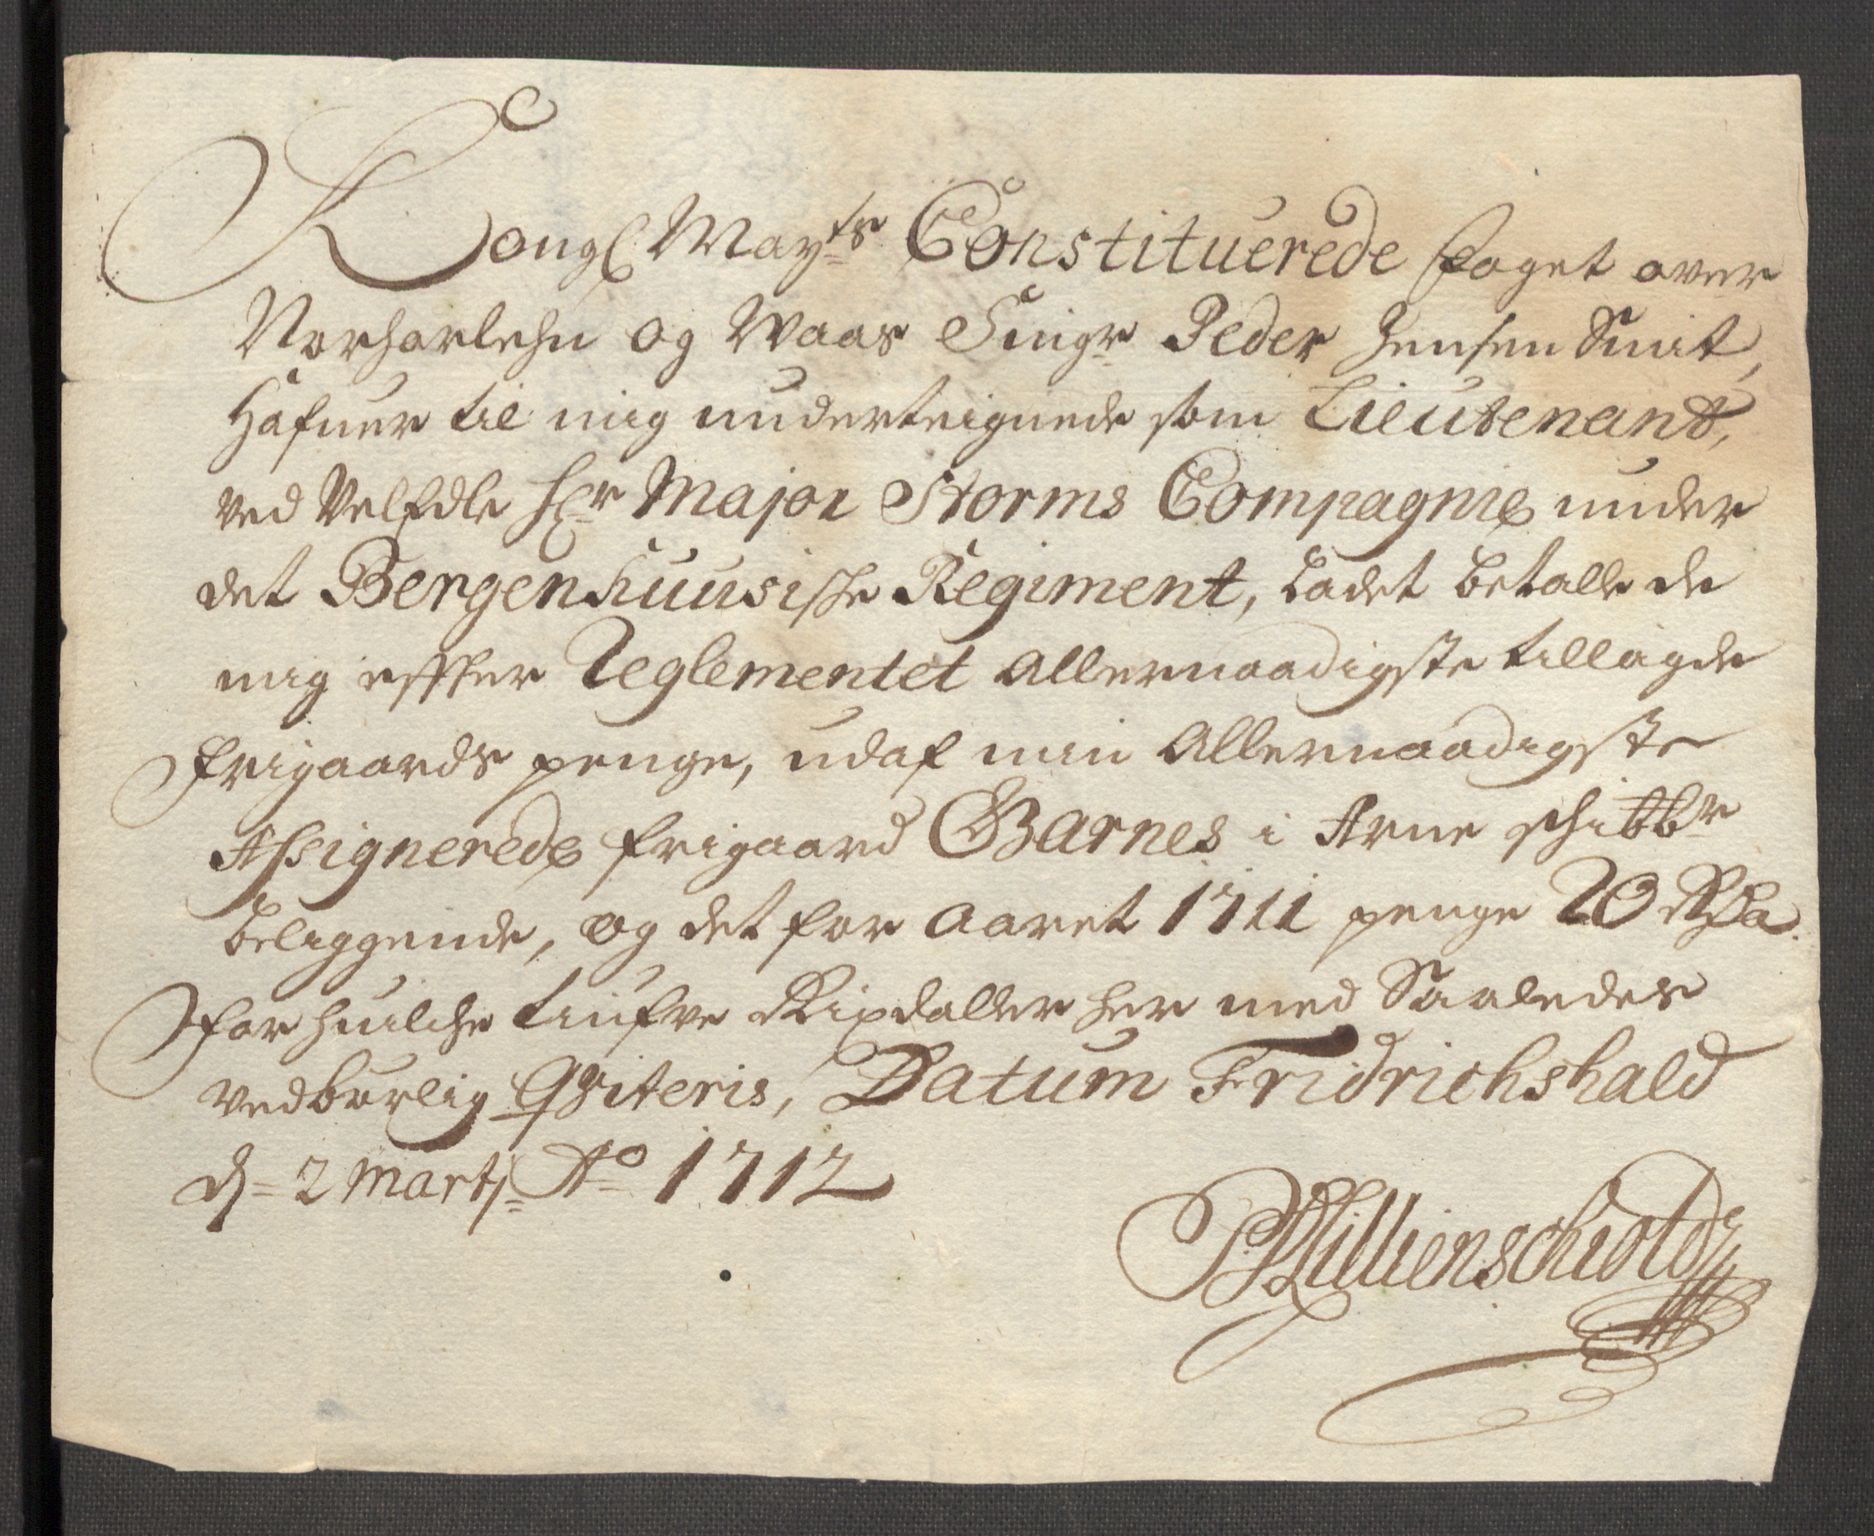 Kongl: May:ts Constituerede foget over
Norhorlehn og Waas Sing:r Peder Jensen Smit,
Hafuer til mig underteignede som Lieutenant,
ved Velædle H:r Major Storms Compagnie under
det Bergenhuusishe Regiment, ladet betalle de
mig effter Reglementet Allernaadigste tillagde
frigaards penge, udaf min Allernaadigste
Assignerede frigaard Garnes i Arne schibbr
beliggende, og det for Aaret 1711 penge 20 Rdr
for huilche tiufve Rixdaller her med Saaledes
vedbørlig Qviteris, Datum Fridrichshald
d= 2 Martj= Ao 1712
Lillienschiold